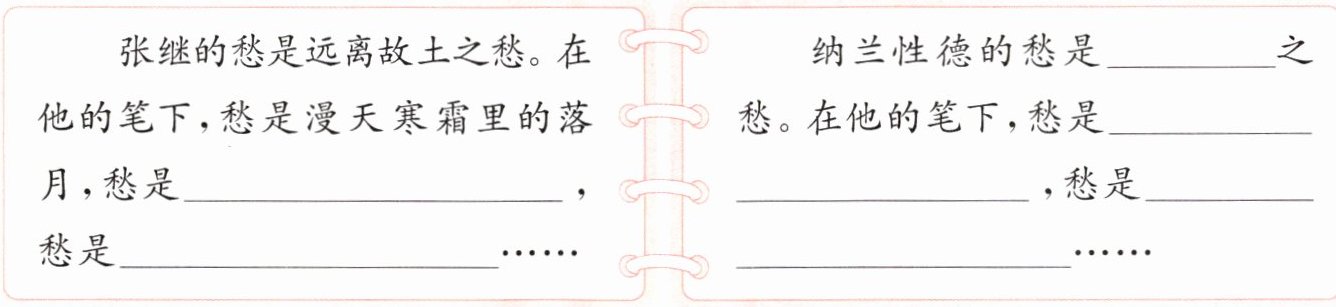 张继的愁是远离故土之愁。在
他的笔下,愁是漫天寒霜里的落
月,愁是____________,
愁是____________……
纳兰性德的愁是______之
愁。在他的笔下,愁是______
__________,愁是______
____________……